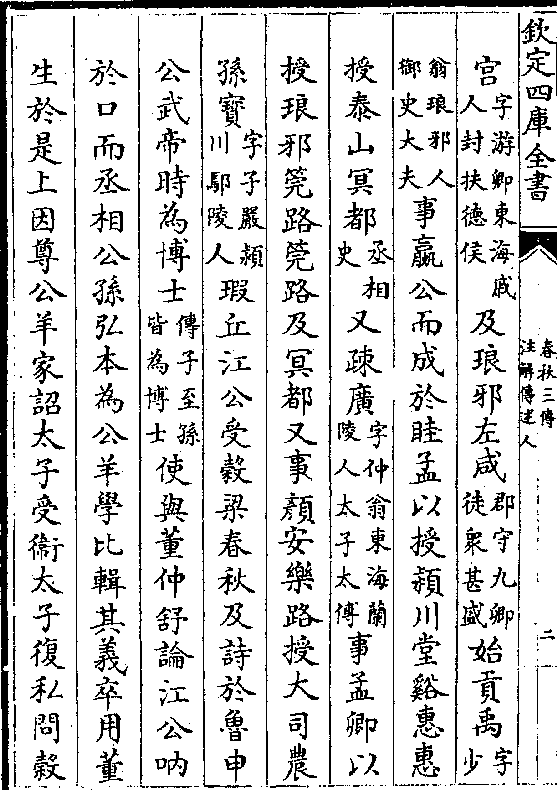 欽定四庫全書
春秋三傳
注解傳述人
二
宮字游卿東海戚人封扶德侯及琅邪左咸郡守九卿徒衆甚盛始貢禹字少
翁琅邪人御史大夫事嬴公而成於眭孟以授潁川堂谿惠惠
授泰山冥都丞相史又疎廣字仲翁東海蘭陵人太子太傅事孟卿以
授琅邪筦路筦路及冥都又事顏安樂路授大司農
孫寳字子嚴潁川鄢陵人瑕丘江公受糓梁春秋及詩於魯申
公武帝時為博士傳子至孫皆為博士使與董仲舒論江公吶
於口而丞相公孫弘本為公羊學比輯其義卒用董
生於是上因尊公羊家詔太子受衛太子復私問糓